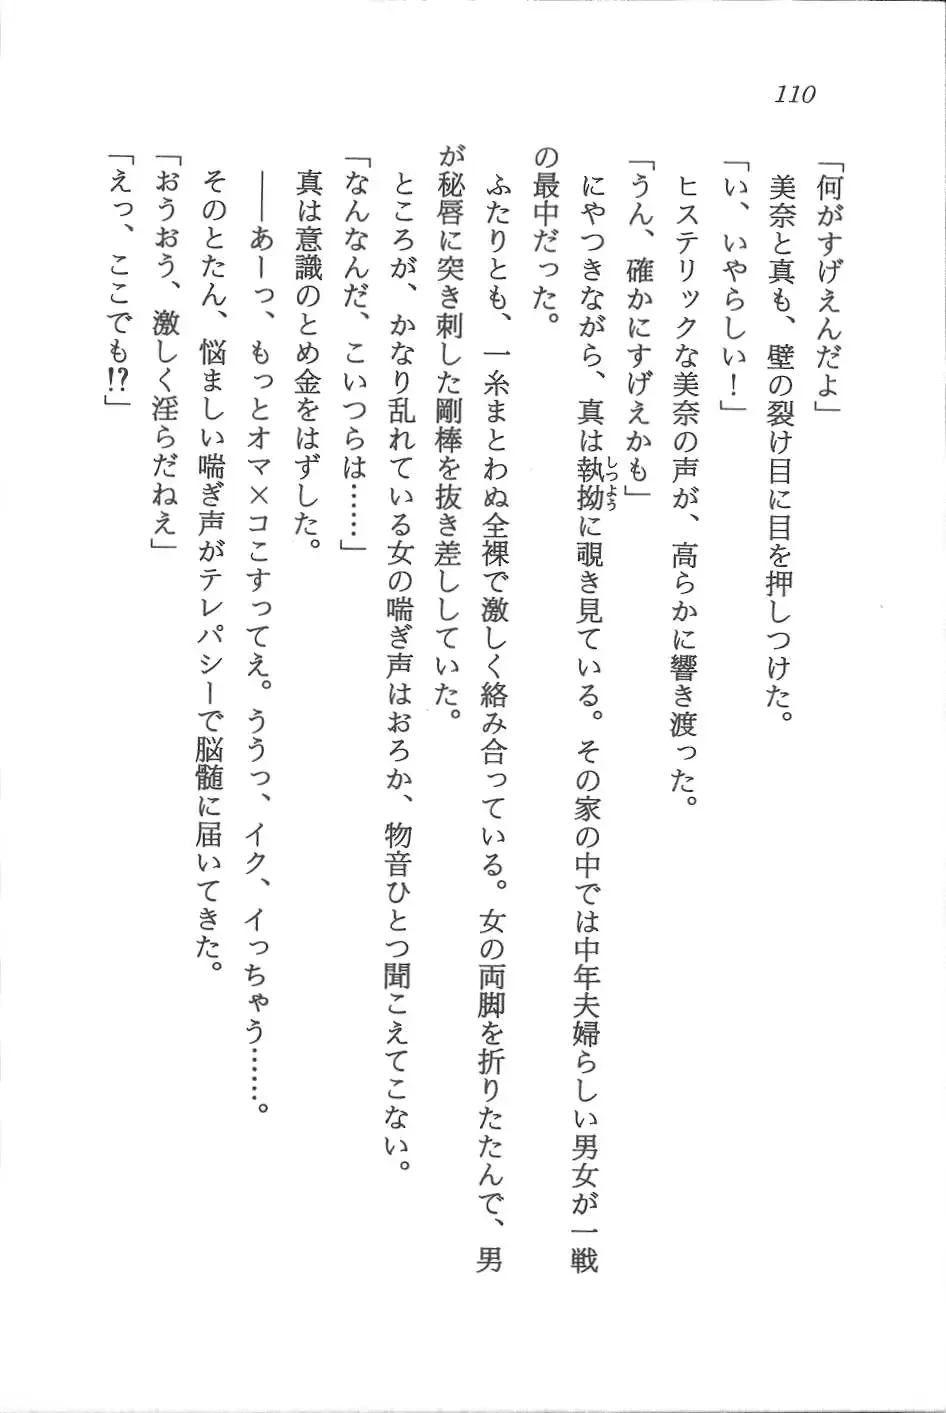 110
「何がすげえんだよ」
美奈と真も、壁の裂け目に目を押しつけた。
「い、いやらしい！」
ヒステリックな美奈の声が、高らかに響き渡った。
「うん、確かにすげえかも」
にやつきながら、真は執拗に覗き見ている。その家の中では中年夫婦らしい男女が一戦
しつよう
の最中だった。
ふたりとも、一糸まとわぬ全裸で激しく絡み合っている。女の両脚を折りたたんで、男
が秘唇に突き刺した剛棒を抜き差ししていた。
ところが、かなり乱れている女の喘ぎ声はおろか、物音ひとつ聞こえてこない。
「なんなんだ、こいつらは……」
真は意識のとめ金をはずした。
――あーっ、もっとオマ×コこすってえ。ううっ、イク、イっちゃう……。
そのとたん、悩ましい喘ぎ声がテレパシーで脳髄に届いてきた。
「おうおう、激しく淫らだねえ」
「えっ、ここでも!?」